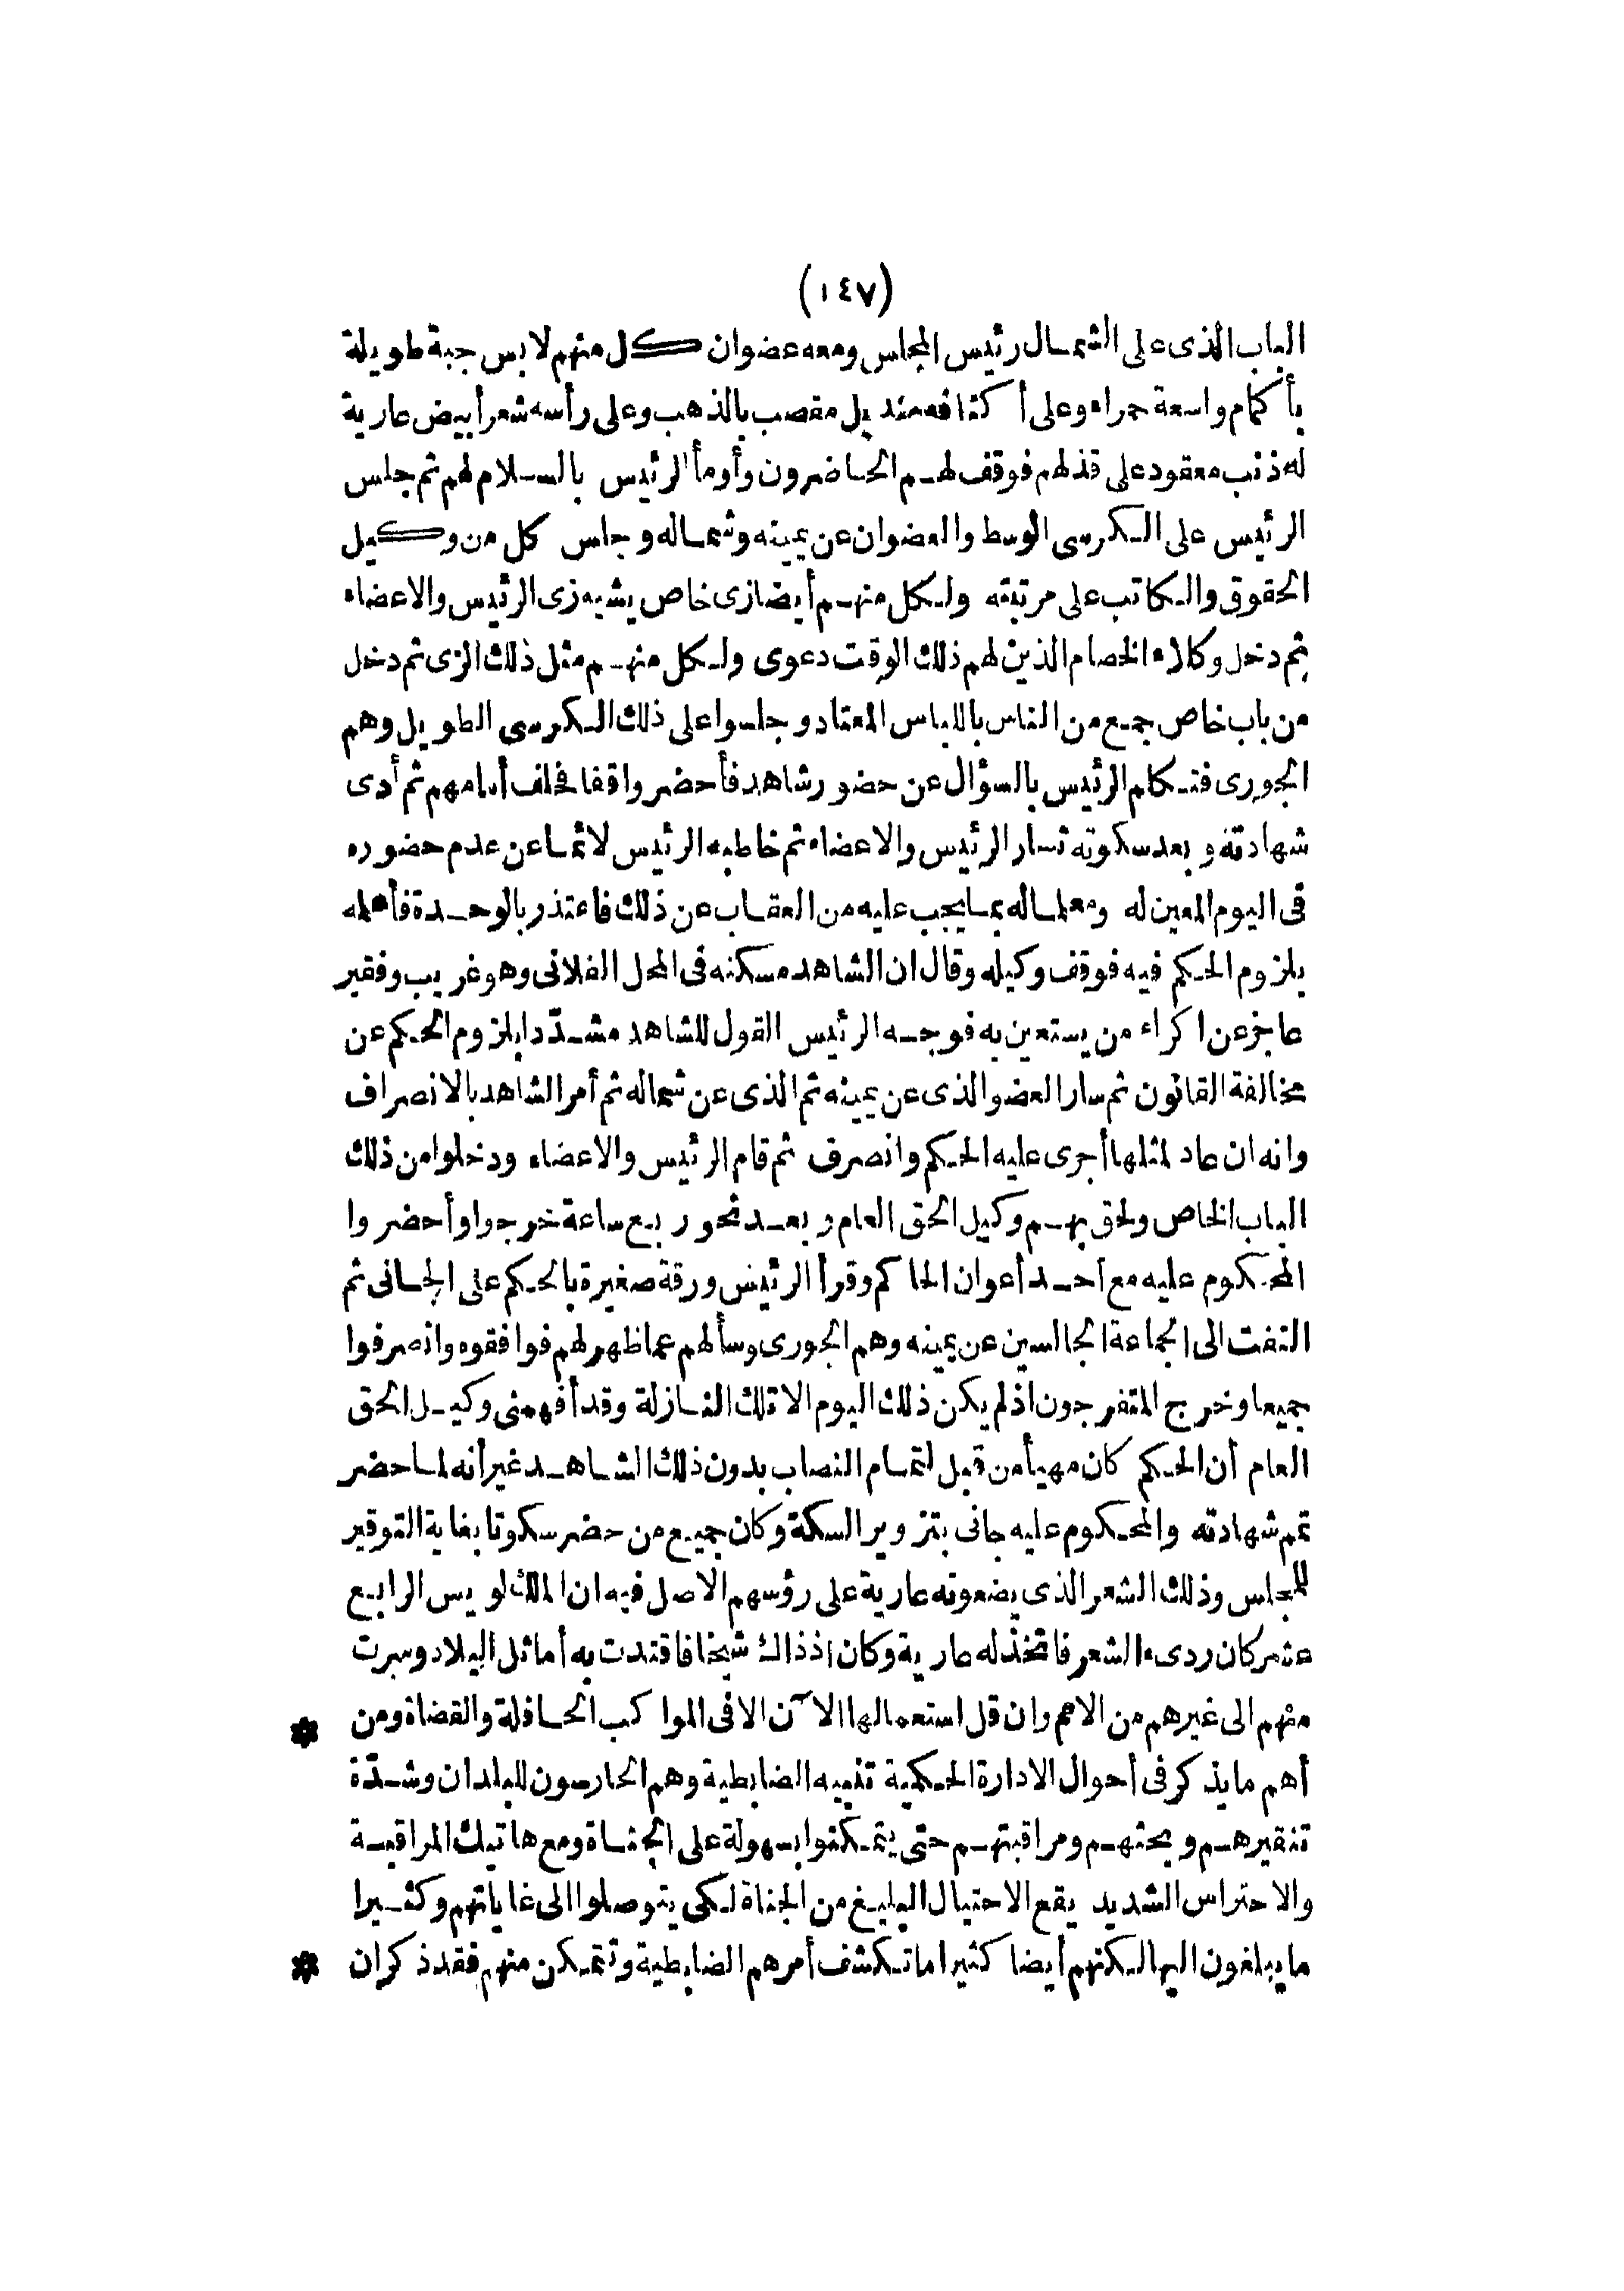 (١٤٧)
الباب الذى على الشمال رئيس المجلس ومعه عضوان كل منهم لابس جبة طويلة
بأكمام واسعة حمراء وعلى أكتافه منديل مقصب بالذهب وعلى رأسه شعر أبيض عارية
له ذنب معقود على قذلهم فوقف لهم الحاضرون وأومأ الرئيس بالسلام لهم ثم جلس
الرئيس على الكرسى الوسط والعضوان عن يمينه وشماله وجلس كل من وكيل
الحقوق والكاتب على مرتبته ولكل منهم أيضا زى خاص يشبه زى الرئيس والاعضاء
ثم دخل وكلاء الخصام الذين لهم ذلك الوقت دعوى ولكل منهم مثل ذلك الزى ثم دخل
من باب خاص جمع من الناس باللباس المعتاد وجلسوا على ذلك الكرسى الطويل وهم
الجورى فتكلم الرئيس بالسؤال عن حضور شاهد فأحضر واقفا فحلف أمامهم ثم أدى
شهادته وبعد سكوته تسار الرئيس والاعضاء ثم خاطبه الرئيس لائما عن عدم حضوره
فى اليوم المعين له ومعلما له بما يجب عليه من العقاب عن ذلك فاعتذر بالوحدة فأعلمه
بلزوم الحكم فيه فوقف وكيله وقال ان الشاهد مسكنه فى المحل الفلانى وهو غريب وفقير
عاجز عن اكراء من يستعين به فوجه الرئيس القول للشاهد مشدّدا بلزوم الحكم عن
مخالفة القانون ثم سار العضو الذى عن يمينه ثم الذى عن شماله ثم أمر الشاهد بالانصراف
وانه ان عاد لمثلها أجرى عليه الحكم وانصرف ثم قام الرئيس والاعضاء ودخلوا من ذلك
الباب الخاص ولحق بهم وكيل الحق العام وبعد نحو ربع ساعة خرجوا وأحضروا
المحكوم عليه مع أحد أعوان الحاكم وقرأ الرئيس ورقة صغيرة بالحكم على الجانى ثم
التفت الى الجماعة الجالسين عن يمينه وهم الجورى وسألهم عما ظهر لهم فوافقوه وانصرفوا
جميعا وخرج المتفرجون اذ لم يكن ذلك اليوم الا تلك النازلة وقد أفهمنى وكيل الحق
العام أن الحكم كان مهيأ من قبل لتمام النصاب بدون ذلك الشاهد غير أنه لما حضر
تمم شهادته والمحكوم عليه جانى بتزوير السكة وكان جميع من حضر سكوتا بغاية التوقير
للمجلس وذلك الشعر الذى يضعونه عارية على رؤسهم الاصل فيه ان الملك لويس الرابع
عشر كان ردىء الشعر فاتخذ له عارية وكان اذ ذاك شيخا فاقتدت به أماثل البلاد وسرت
منهم الى غيرهم من الامم وان قل استعمالها الآن الا فى المواكب الحافلة والقضاة ومن *
أهم ما يذكر فى أحوال الادارة الحكمية تنبيه الضابطية وهم الحارسون للبلدان وشدّة
تنقيرهم وبحثهم ومراقبتهم حتى يتمكنوا بسهولة على الجناة ومع هاتيك المراقبة
والاحتراس الشديد يقع الاحتيال البليغ من الجناة لكى يتوصلوا الى غاياتهم وكثيرا
ما يبلغون اليها لكنهم أيضا كثيرا ما تكشف أمرهم الضابطية وتتمكن منهم فقد ذكر ان *